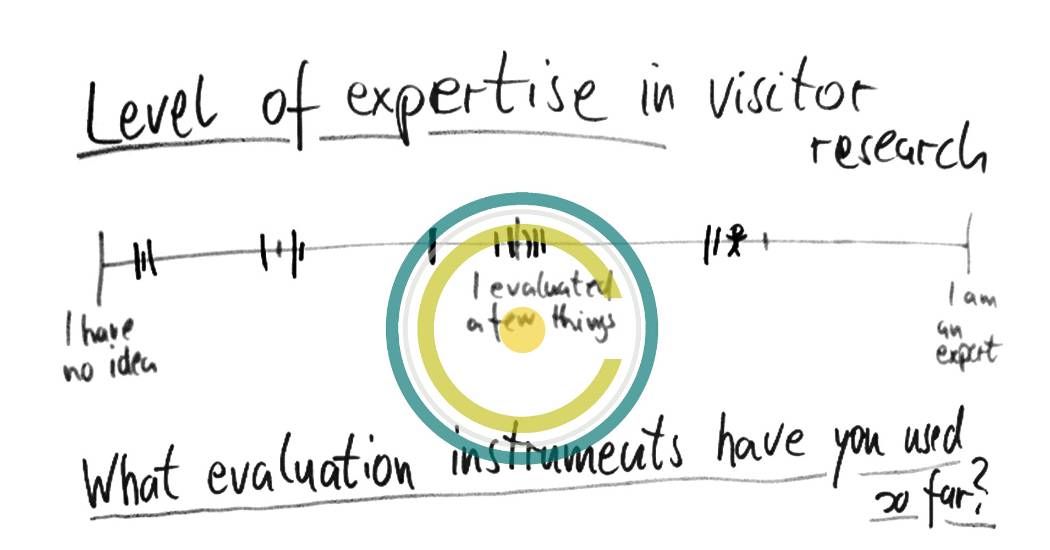 Level of expertise in visitor
research
I have
no idea
I evaluated
a few things
I am
an
expert
What evaluation instruments have you used
so far?